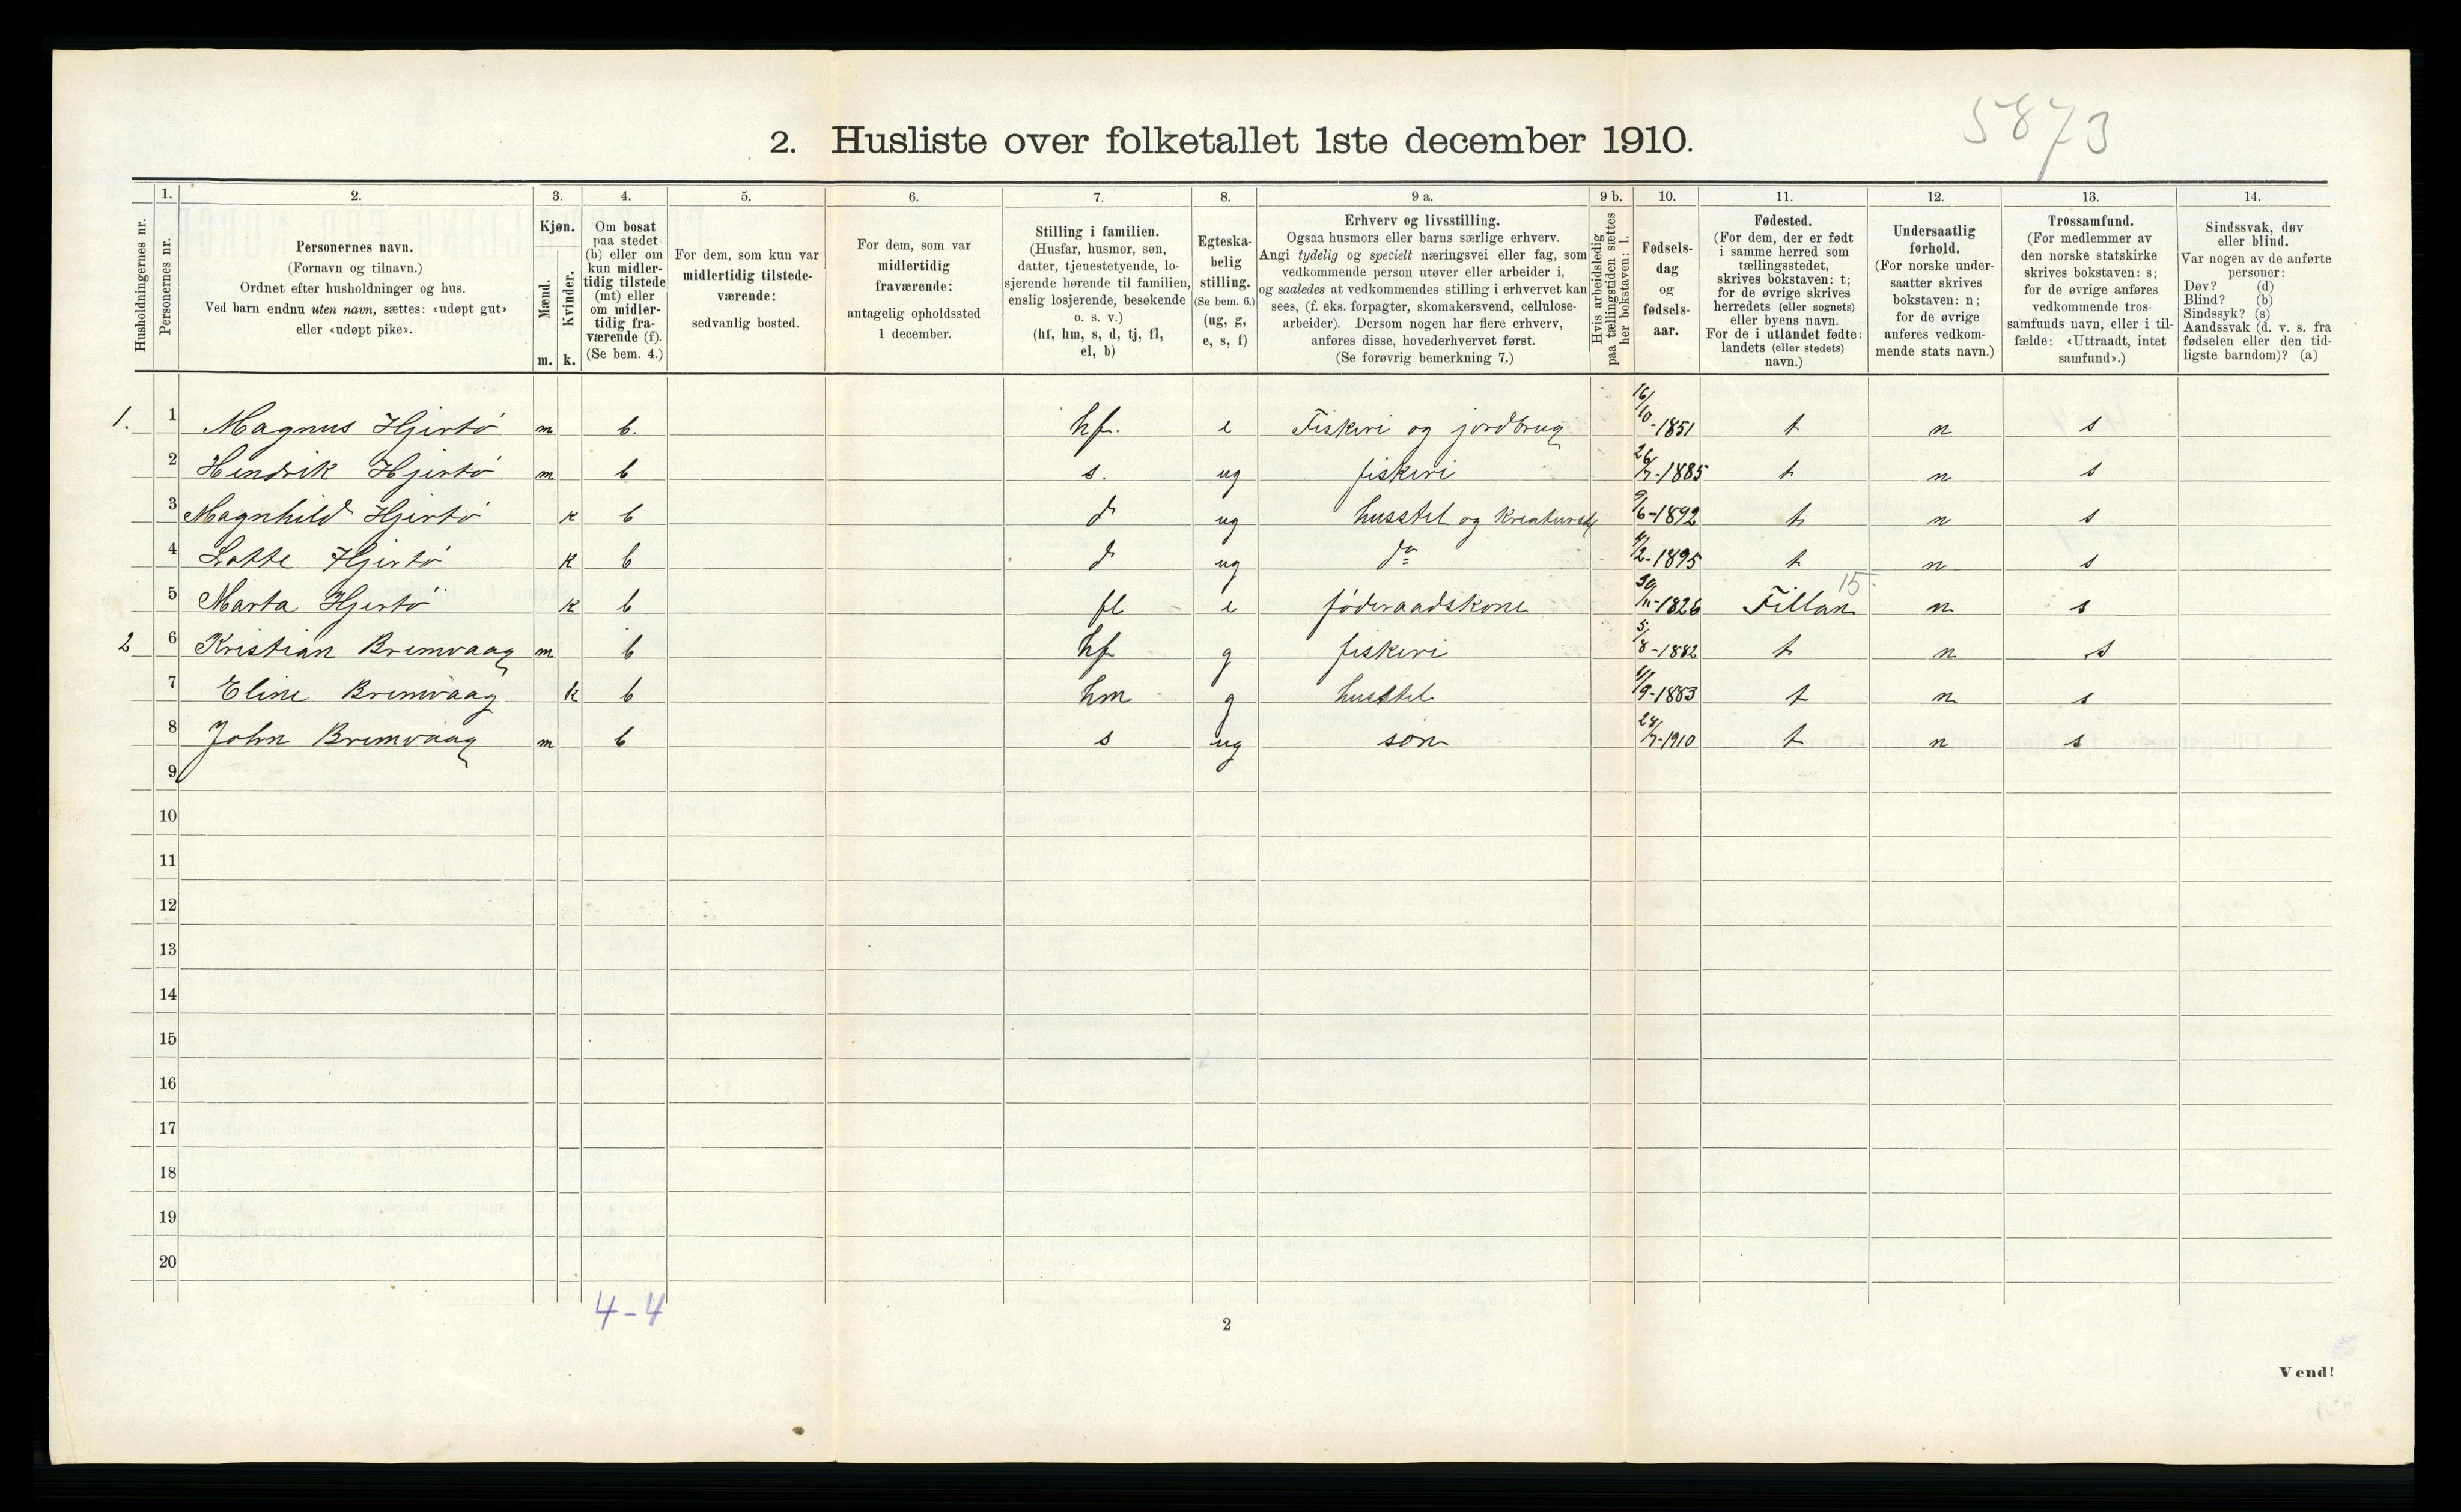 5873
2. Husliste over folketallet 1ste december 1910.
Husholdningernes nr.
1.
Personernes nr.
2.
Personernes navn.
(Fornavn og tilnavn.)
Ordnet efter husholdninger og hus.
Ved barn endnu uten navn, sættes: «udøpt gut»
eller «udøpt pike».
3.
Kjøn.
Mænd.
Kvinder.
m. k.
4.
Om bosat
paa stedet
(b) eller om
kun midler-
tidig tilstede
(mt) eller
om midler-
tidig fra-
værende (f).
(Se bem. 4.)
5.
For dem, som kun var
midlertidig tilstede-
værende:
sedvanlig bosted.
6.
For dem, som var
midlertidig
fraværende:
antagelig opholdssted
1 december.
7.
Stilling i familien.
(Husfar, husmor, søn,
datter, tjenestetyende, lo-
sjerende hørende til familien,
enslig losjerende, besøkende
o. s. v.)
(hf, hm, s, d, tj, fl,
el, b)
8.
Egteska-
belig
stilling.
(Se bem. 6.)
(ug, g,
e, s, f)
9 a.
Erhverv og livsstilling.
Ogsaa husmors eller barns særlige erhverv.
Angi tydelig og specielt næringsvei eller fag, som
vedkommende person utøver eller arbeider i,
og saaledes at vedkommendes stilling i erhvervet kan
sees, (f. eks. forpagter, skomakersvend, cellulose-
arbeider). Dersom nogen har flere erhverv,
anføres disse, hovederhvervet først.
(Se forøvrig bemerkning 7.)
9 b.
Hvis arbeidsledig
paa tællingstiden sættes
her bokstaven: l.
10.
Fødsels-
dag
og
fødsels-
aar.
11.
Fødested.
(For dem, der er født
i samme herred som
tællingsstedet,
skrives bokstaven: t;
for de øvrige skrives
herredets (eller sognets)
eller byens navn.
For de i utlandet fødte:
landets (eller stedets)
navn.)
12.
Undersaatlig
forhold.
(For norske under-
saatter skrives
bokstaven: n;
for de øvrige
anføres vedkom-
mende stats navn.)
13.
Trossamfund.
(For medlemmer av
den norske statskirke
skrives bokstaven: s;
for de øvrige anføres
vedkommende tros-
samfunds navn, eller i til-
fælde: «Uttraadt, intet
samfund».)
14.
Sindssvak, døv
eller blind.
Var nogen av de anførte
personer:
Døv? (d)
Blind? (b)
Sindssyk? (s)
Aandssvak (d. v. s. fra
fødselen eller den tid-
ligste barndom)? (a)
1. 1 Magnus Hjertö m b. hf. e Fiskeri og jordbrug 16/10-1851 t n s
2 Hendrik Hjertö m b s. ug fiskeri 26/7-1885 t n s
3 Magnhild Hjertö k b d ug husstel og Kreaturstel 9/6-1892 t n s
4 Lotte Hjertö k b d ug do /2-1895 t n s
15
5 Marta Hjertö k b fl e föderaadskone 30/11-1826 Fillan n s
2 6 Kristian Bremvaag m b hf g fiskeri 5/8-1882 t n s
7 Eline Bremvaag k b hm g husstel /9-1883 t n s
8 John Bremvaag m b s ug sön 24/7-1910 t n s
9
10
11
12
13
14
15
16
17
18
19
20
4-4
2
Vend!